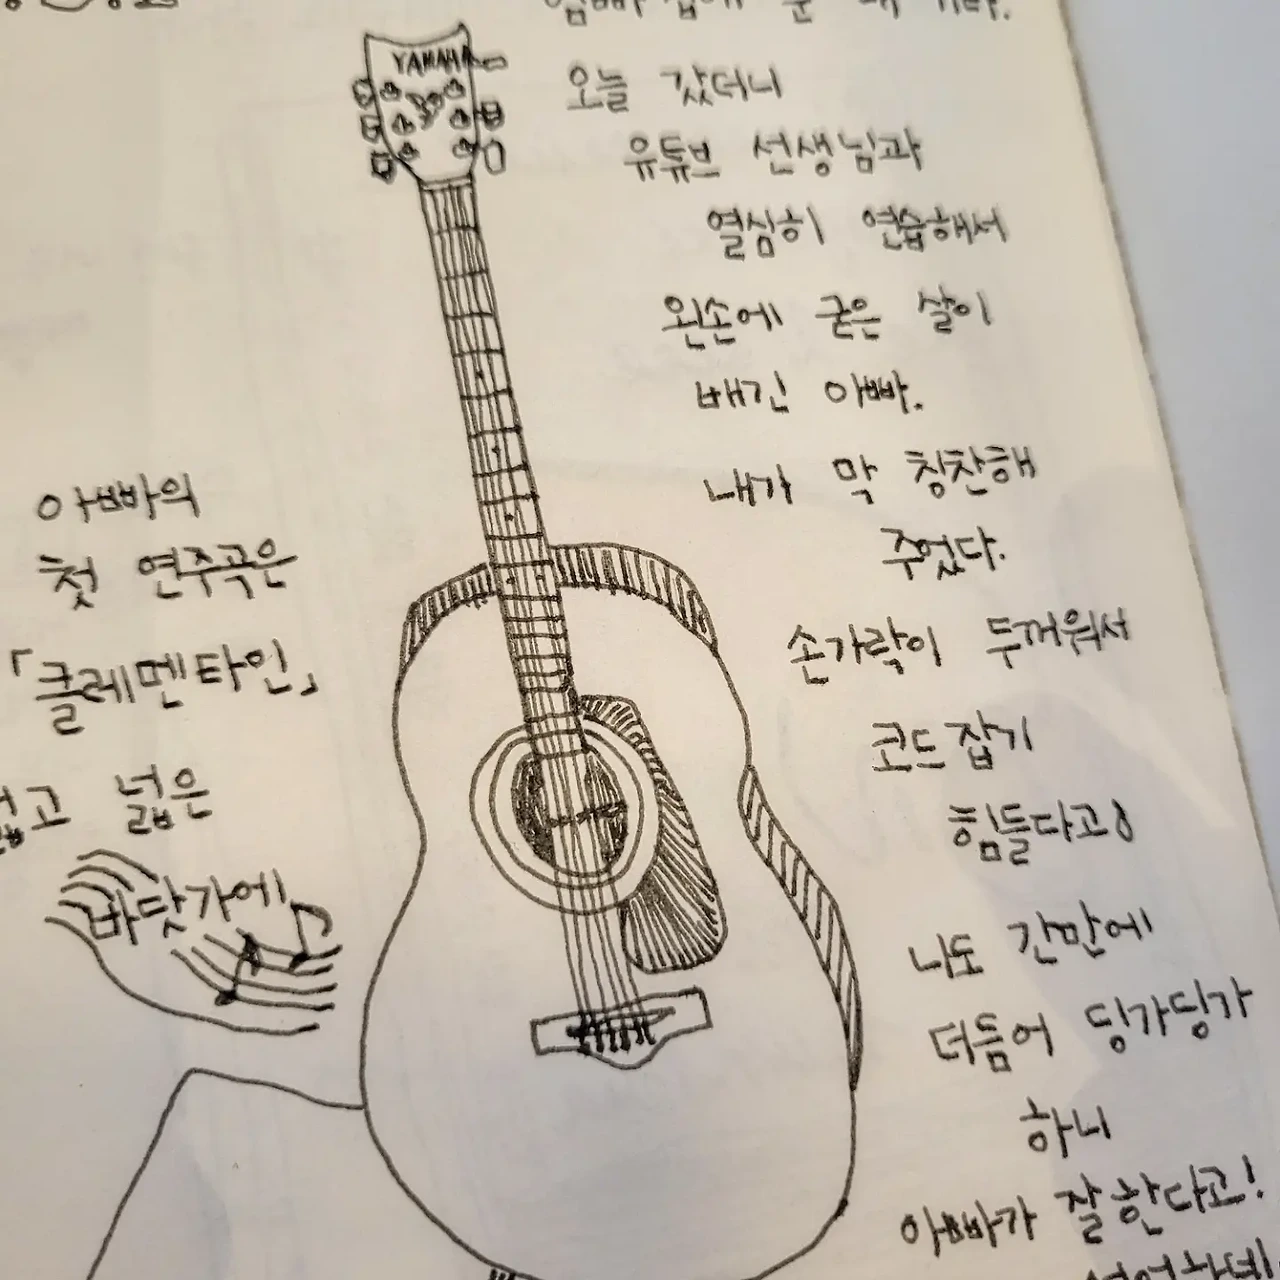 YAMAHA
오늘 갔더니
유튜브 선생님과
열심히 연습해서
왼손에 굳은 살이
배긴 아빠.
내가 막 칭찬해
주었다.
손가락이 두꺼워서
코드 잡기
힘들다고!
나도 간만에
더듬어 딩가딩가
하니
아빠가 잘한다고!
아빠의
첫 연주곡은
「클레멘타인」
넓고 넓은
바닷가에